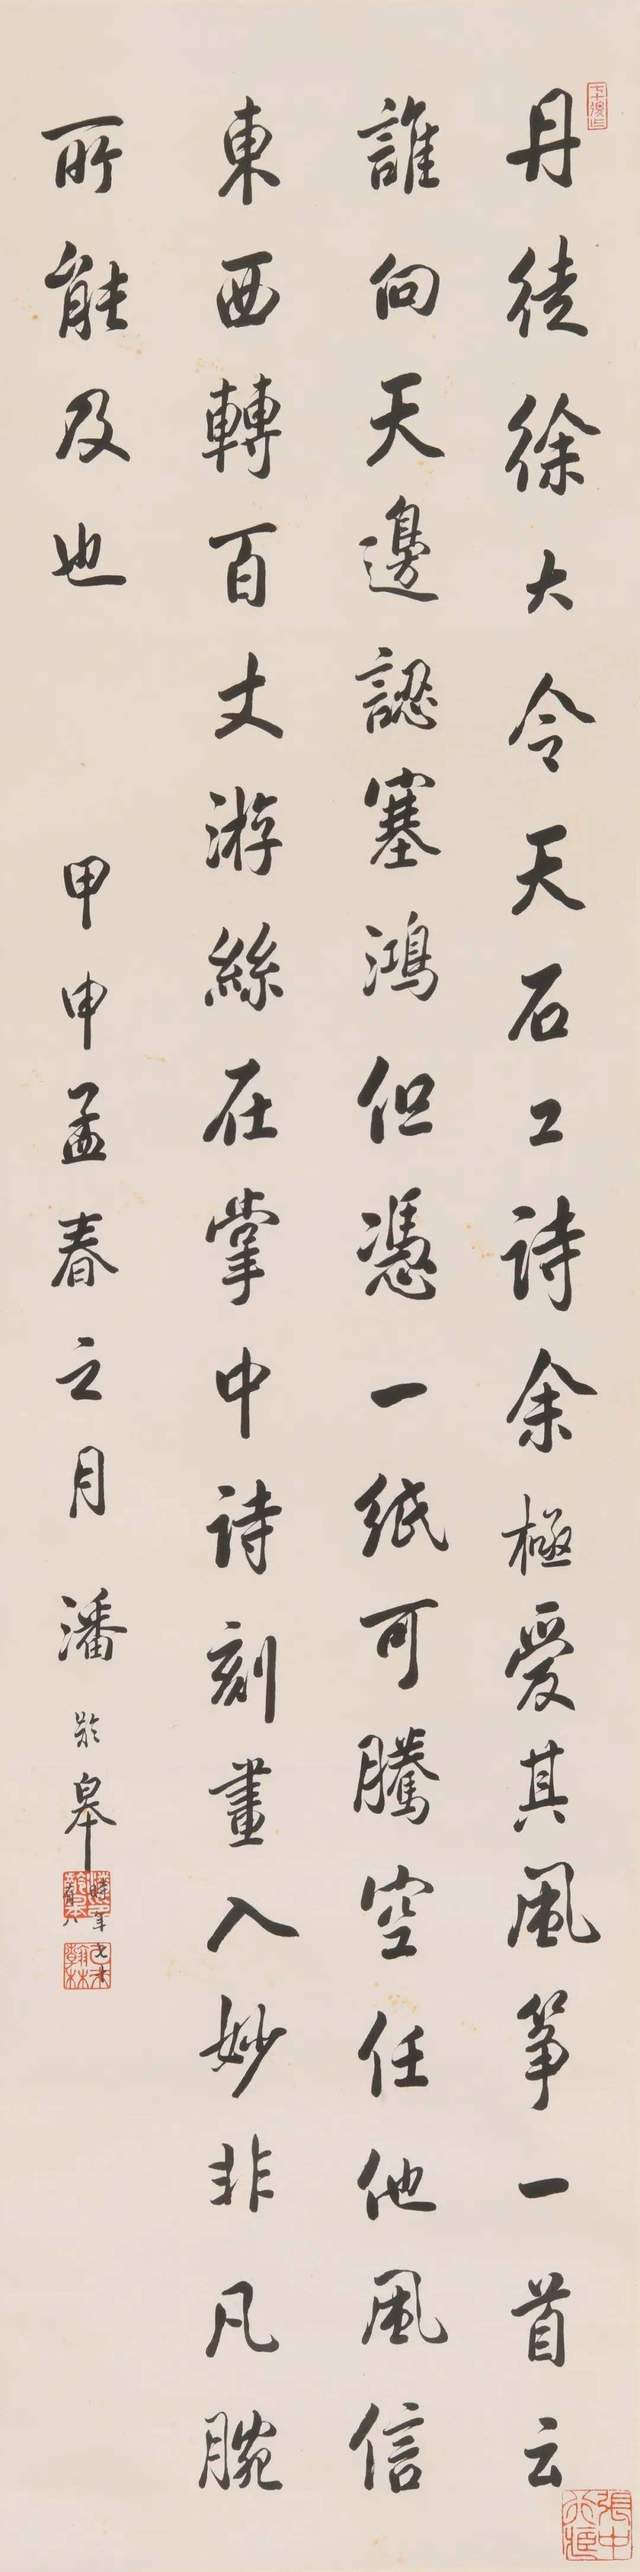 丹徒徐大令天石工詩余極愛其風箏一首云
誰向天邊認塞鴻但憑一紙可騰空任他風信
東西轉百丈游絲在掌中詩刻畫入妙非凡腕
所能及也
甲申孟春之月潘齡皋
時年七十有八
張中行臧